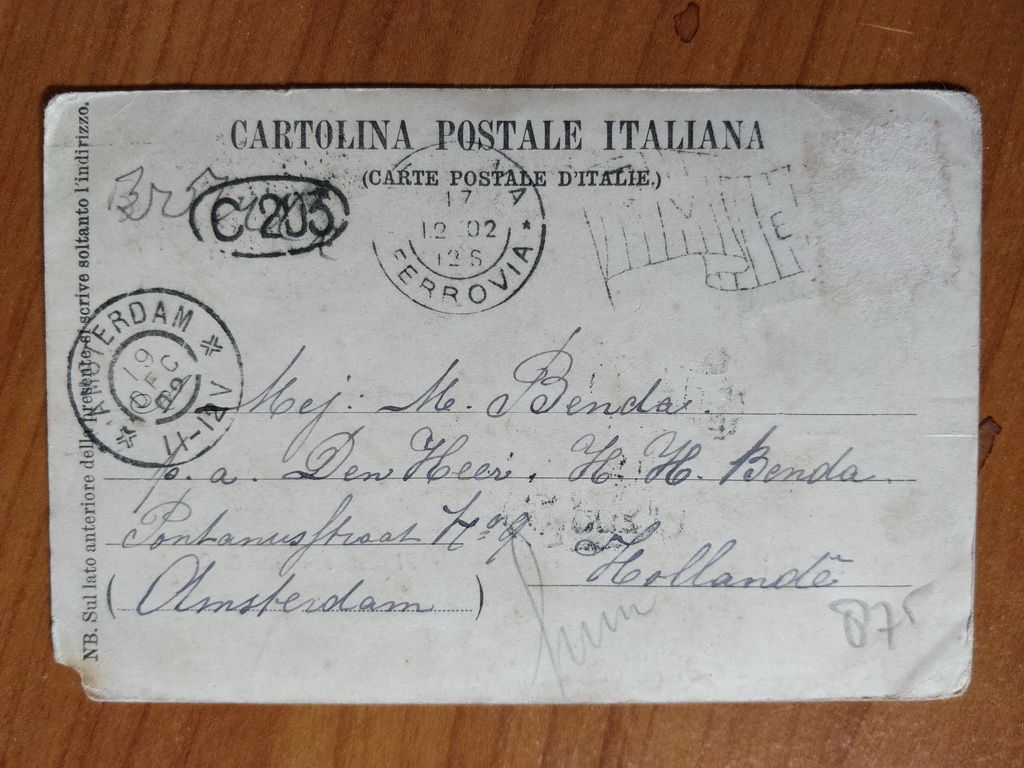 CARTOLINA POSTALE ITALIANA
(CARTE POSTALE D'ITALIE.)
NB. Sul lato anteriore della presente si scrive soltanto l'indirizzo.
C 203
17
12 02
12 S
FERROVIA *
AMSTERDAM
19
DEC
02
11-12 V
Mej: M. Benda.
p. a. Den Heer. H. H. Benda
Pontanusstraat No 9
Hollande
(Amsterdam)
875